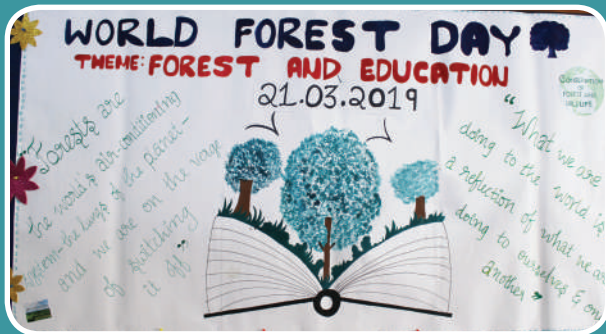 WORLD FOREST DAY
THEME: FOREST AND EDUCATION
21.03.2019
CONSERVATION
OF
FOREST AND
WILDLIFE
"Forests are
the world's air-conditioning
system-the lungs of the planet-
and we are on the verge
of switching
it off"
"What we are
doing to the world is
a reflection of what we are
doing to ourselves & one
another"